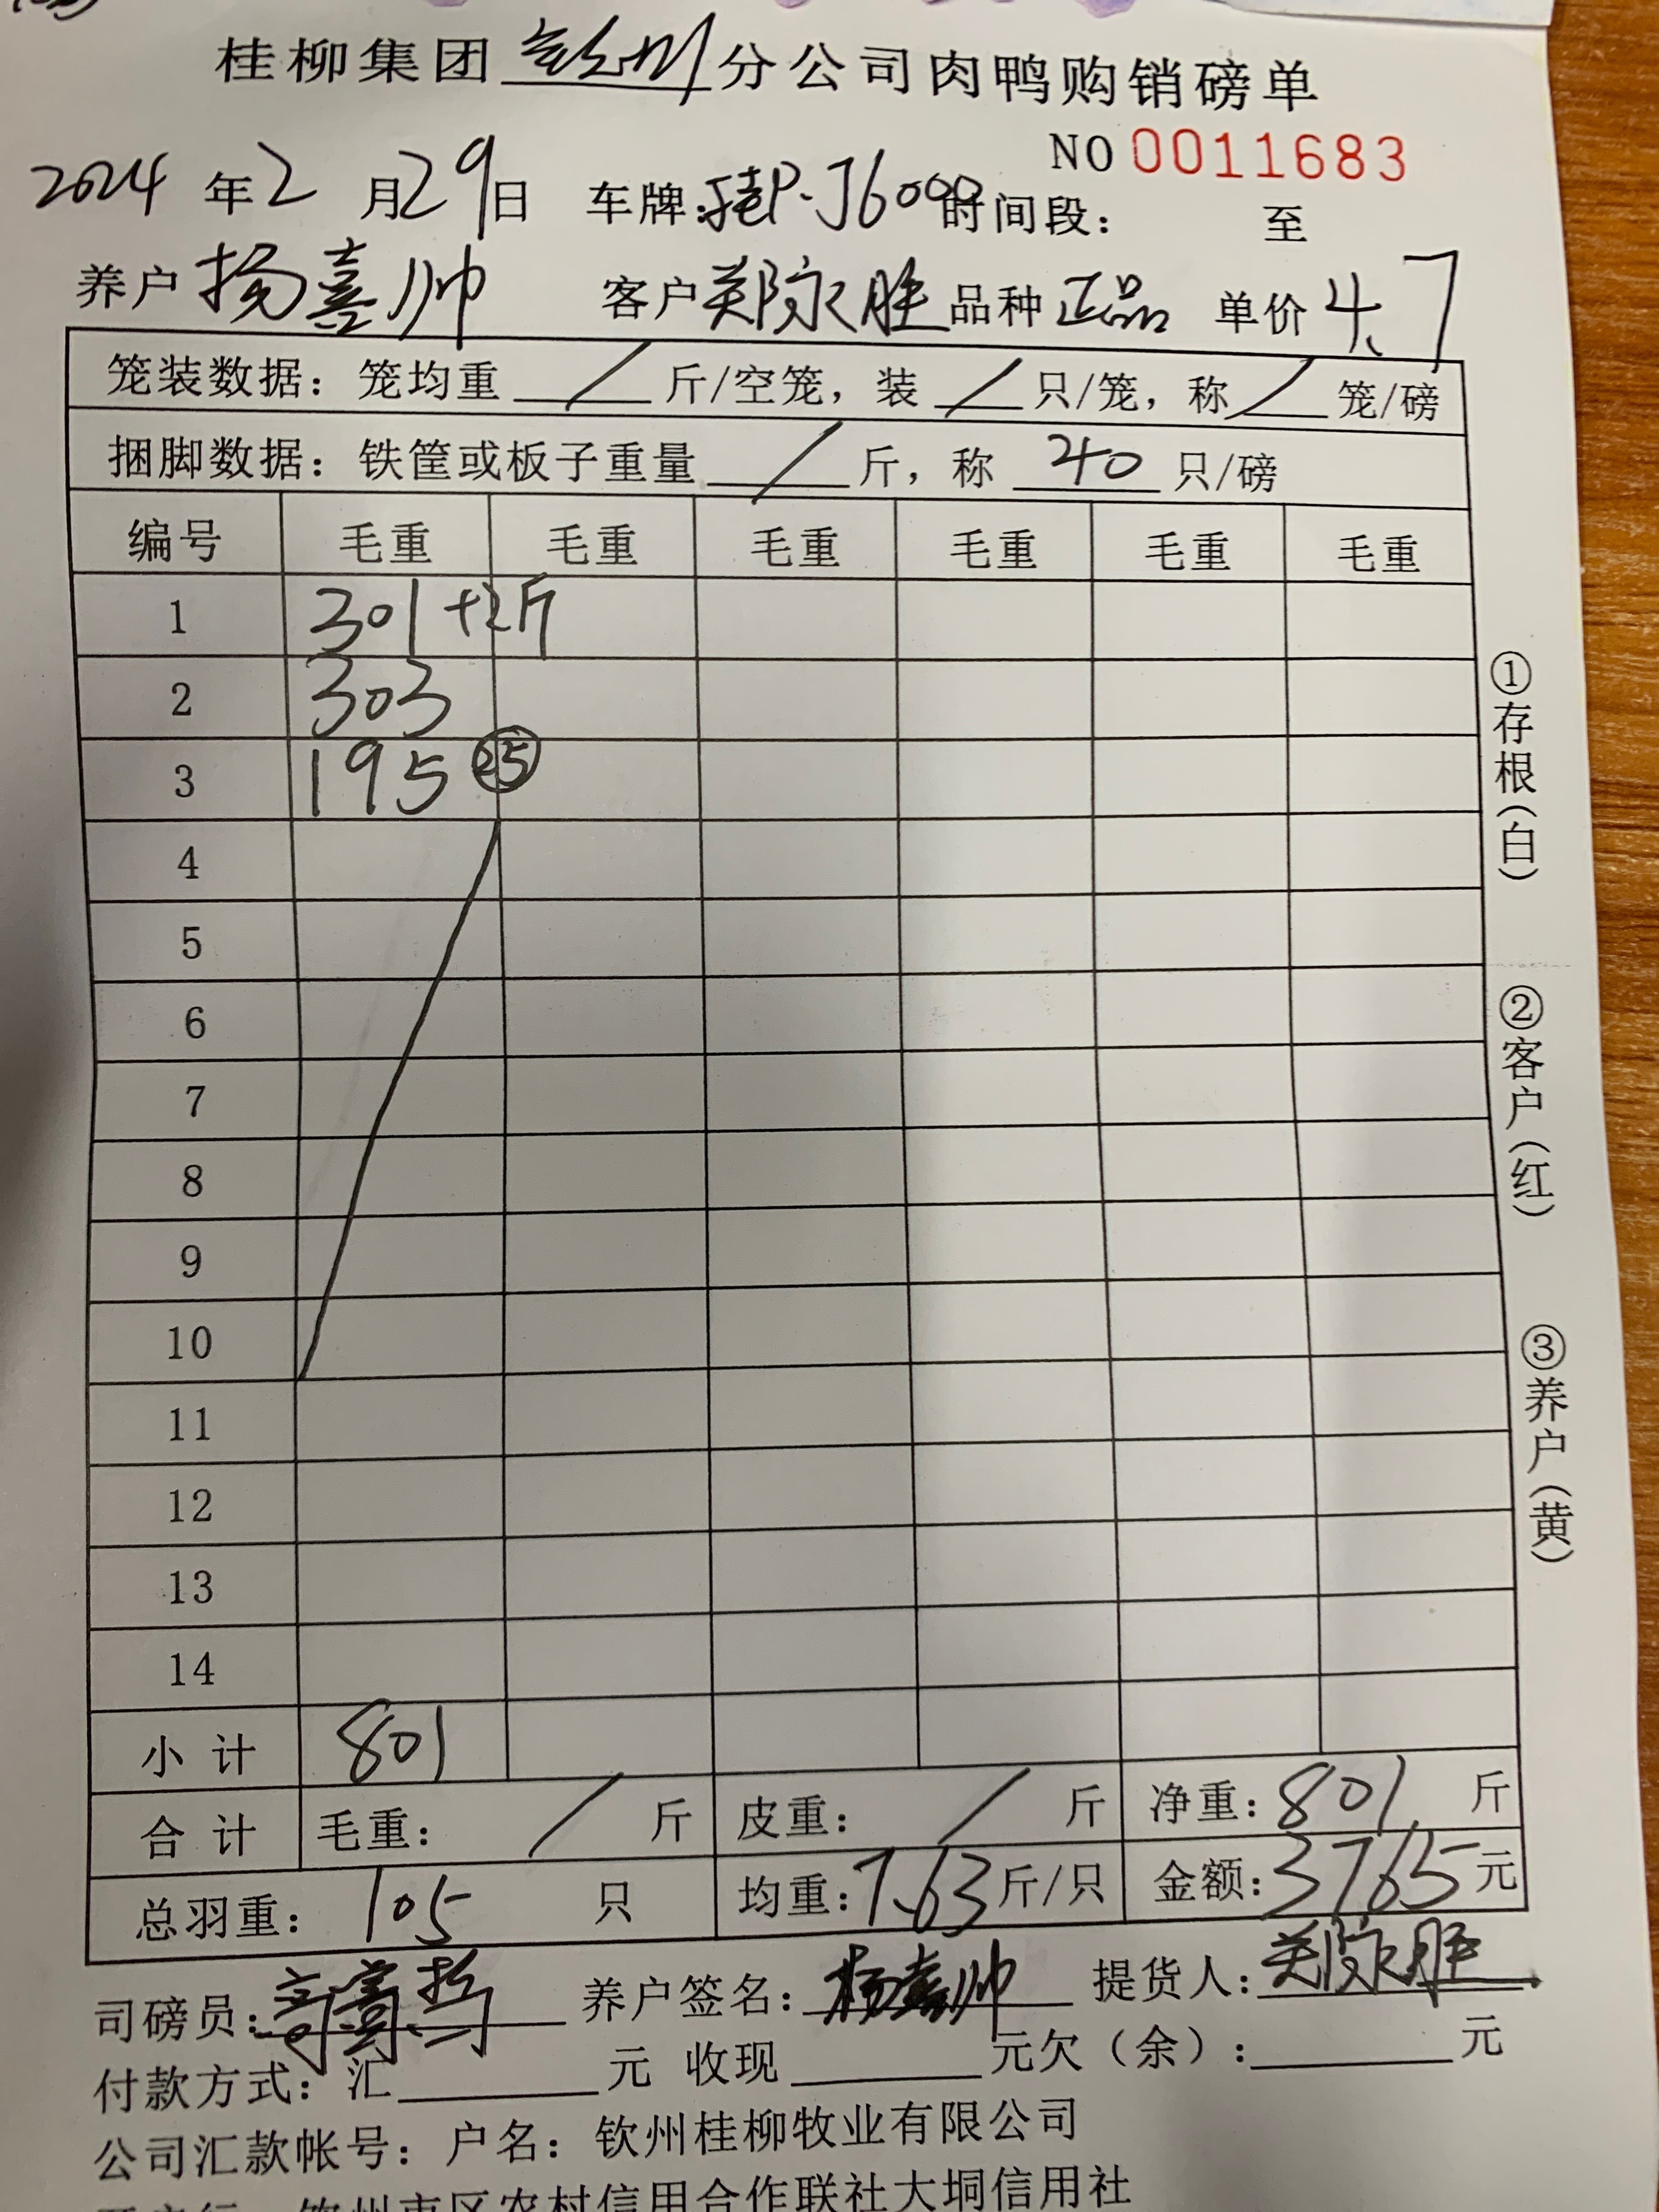 桂柳集团 钦州 分公司肉鸭购销磅单
NO 0011683
2024 年 2 月 29 日 车牌: 桂P·J6000 时间段: 至
养户 杨喜帅 客户 郑家胜 品种 正品 单价 4.7
笼装数据: 笼均重 / 斤/空笼, 装 / 只/笼, 称 / 笼/磅
捆脚数据: 铁筐或板子重量 / 斤, 称 40 只/磅
编号 毛重 毛重 毛重 毛重 毛重 毛重
1 301 +2斤
2 303
3 195 ㉕
4
5
6
7
8
9
10
11
12
13
14
小计 801
合计 毛重: / 斤 皮重: / 斤 净重: 801 斤
总羽重: 105 只 均重: 7.63 斤/只 金额: 3765 元
司磅员: 养户签名: 杨喜帅 提货人: 郑家胜
付款方式: 汇 元 收现 元欠(余): 元
公司汇款帐号: 户名: 钦州桂柳牧业有限公司
钦州市区农村信用合作联社大垌信用社
①存根(白)
②客户(红)
③养户(黄)